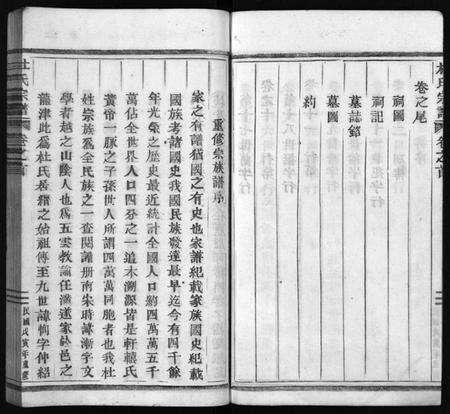 杜氏宗譜
卷之首
卷之尾
祠圖
祠記
墓誌銘
墓圖
約
重修宗族譜序
家之有譜猶國之有史也家譜紀載家族國史紀載
國族考諸國史我國民族發達最早迄今有四千餘
年光榮之歷史最近統計全國人口約四萬萬五千
萬佔全世界人口四分之一追木溯源皆是軒轅氏
黃帝一脈之子孫世人所謂四萬萬同胞者也我杜
姓宗族爲全民族之一查閱譜册南宋時諱漸字文
學者越之山陰人也爲五雲教諭任滿遂家於邑之
龍津此爲杜氏發籍之始祖傳至九世諱軻字仲紹
杜氏宗譜
卷之首
民國戊寅年重修